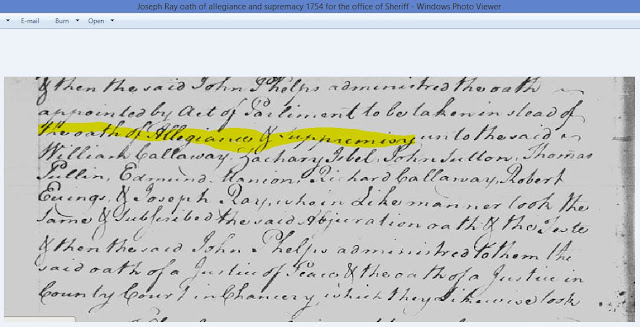 Joseph Ray oath of allegiance and supremacy 1754 for the office of Sheriff - Windows Photo Viewer
E-mail Burn Open
& then the said John Phelps administred the oath
appointed by Act of Parliment to be taken in stead of
the oath of Allegiance & Suppremisy unto the said
William Callaway, Zachary Isbel, John Sutton, Thomas
Pullin, Edmund Manion, Richard Callaway, Robert
Ewings, & Joseph Ray, who in Like manner took the
same & Subscribed the said Abjuration oath & the Teste
& then the said John Phelps administred to them the
said oath of a Justice of Peace & the oath of a Justice in
County Court in Chancery which they Likewise took